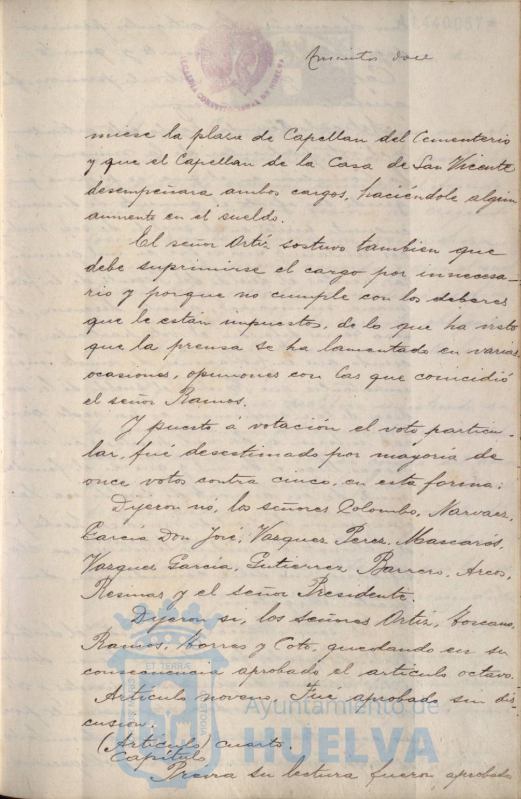 miese la plaza de Capellan del Cementerio
y que el Capellan de la Casa de San Vicente
desempeñara ambos cargos, haciéndole algun
aumento en el sueldo.
El señor Ortiz sostuvo tambien que
debe suprimirse el cargo por innecesa-
rio y porque no cumple con los deberes
que le están impuestos, de lo que ha visto
que la prensa se ha lamentado en varias
ocasiones, opiniones con las que coincidió
el señor Ramos.
Y puesto a votación el voto particu-
lar, fué desestimado por mayoria de
once votos contra cinco, en esta forma:
Dijeron nó, los señores Colombo, Narvaez,
García Don José, Vazquez Perez, Mascarós,
Vazquez García, Gutierrez, Barrero, Arcos,
Resinas y el señor Presidente.
Dijeron si, los señores Ortiz, Toscano,
Ramos, Borres y Coto, quedando en su
consecuencia aprobado el artículo octavo.
Artículo noveno, Fué aprobado sin dis-
cusion.
(Artículo) cuarto.
Capítulo
Previa su lectura fueron aprobado
ET TERRÆ
CUSTODIA
Ayuntamiento de
HUELVA